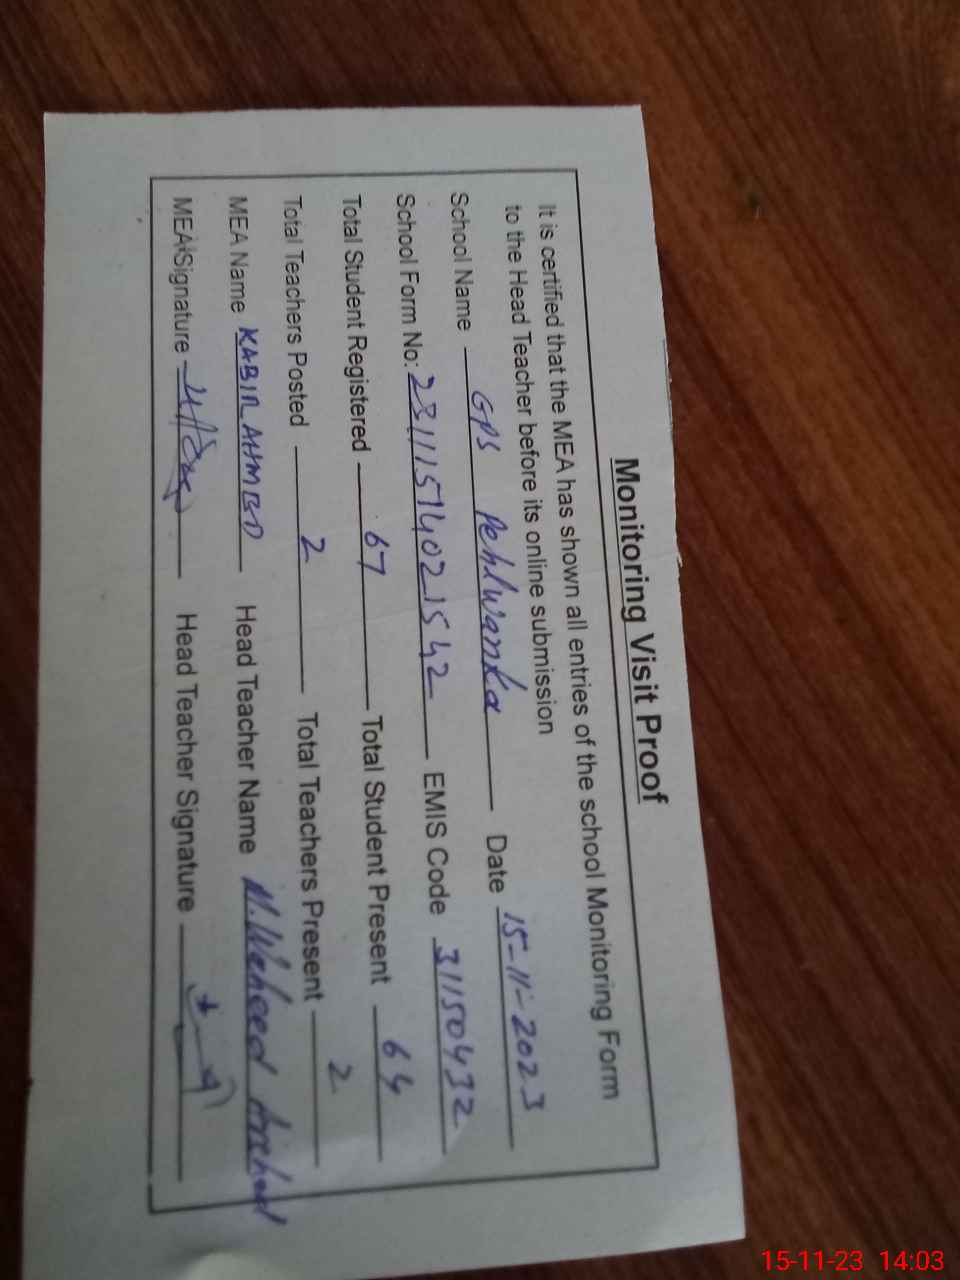 Monitoring Visit Proof
It is certified that the MEA has shown all entries of the school Monitoring Form
to the Head Teacher before its online submission
School Name GPS Pehlwanka Date 15-11-2023
School Form No: 23111514021542 EMIS Code 31150432
Total Student Registered 67 Total Student Present 64
Total Teachers Posted 2 Total Teachers Present 2
MEA Name KABIR AHMED Head Teacher Name M. Waheed Arshad
MEA Signature Head Teacher Signature
15-11-23 14:03